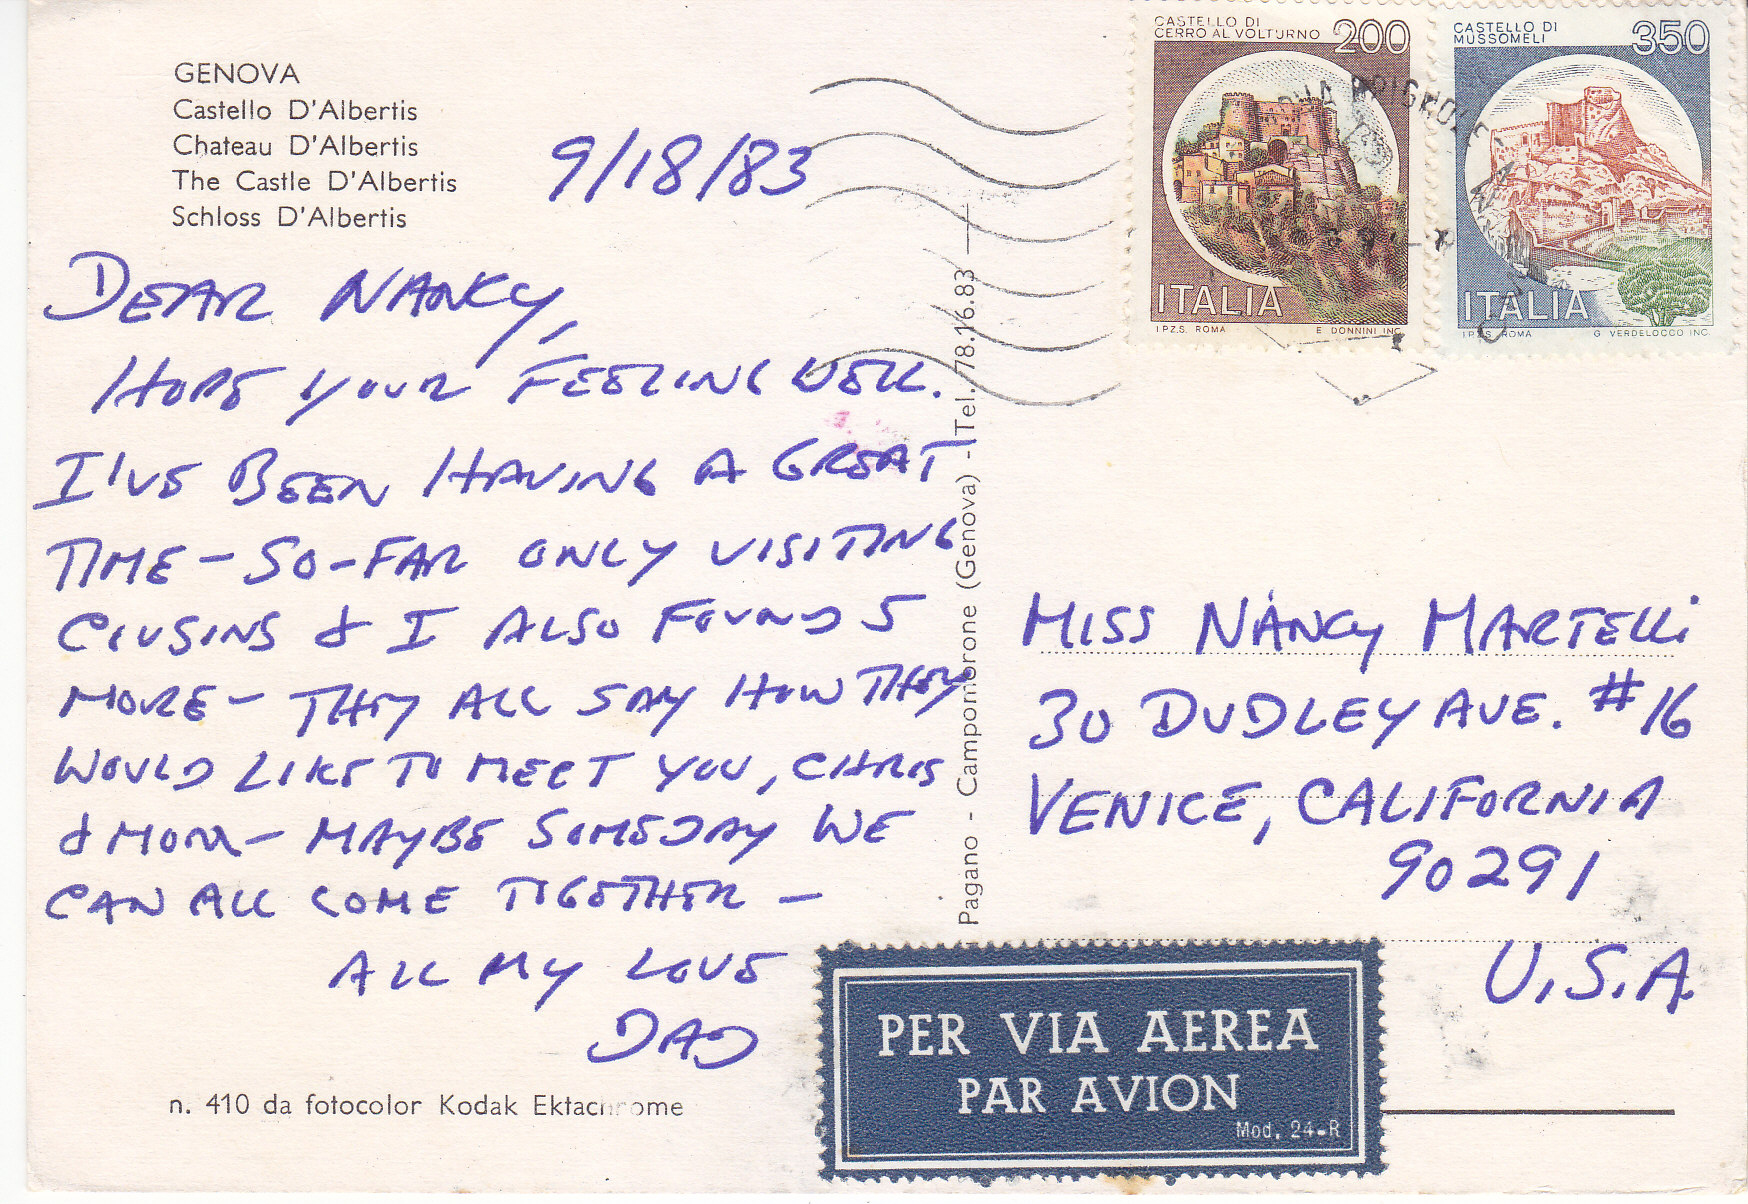 GENOVA
Castello D'Albertis
Chateau D'Albertis
The Castle D'Albertis
Schloss D'Albertis
9/18/83
DEAR NANCY,
HOPE YOUR FEELING WELL.
I'VE BEEN HAVING A GREAT
TIME - SO-FAR ONLY VISITING
COUSINS & I ALSO FOUND 5
MORE - THEY ALL SAY HOW THEY
WOULD LIKE TO MEET YOU, CHRIS
& MOM - MAYBE SOMEDAY WE
CAN ALL COME TOGETHER -
ALL MY LOVE
DAD
n. 410 da fotocolor Kodak Ektachrome
Pagano - Campomorone (Genova) - Tel. 78.16.83
CASTELLO DI
CERRO AL VOLTURNO 200
ITALIA
I.P.Z.S. ROMA E. DONNINI INC.
CASTELLO DI
MUSSOMELI 350
ITALIA
I.P.Z.S. ROMA G. VERDELOCCO INC.
MISS NANCY MARTELLI
30 DUDLEY AVE. #16
VENICE, CALIFORNIA
90291
U.S.A.
PER VIA AEREA
PAR AVION
Mod. 24-R